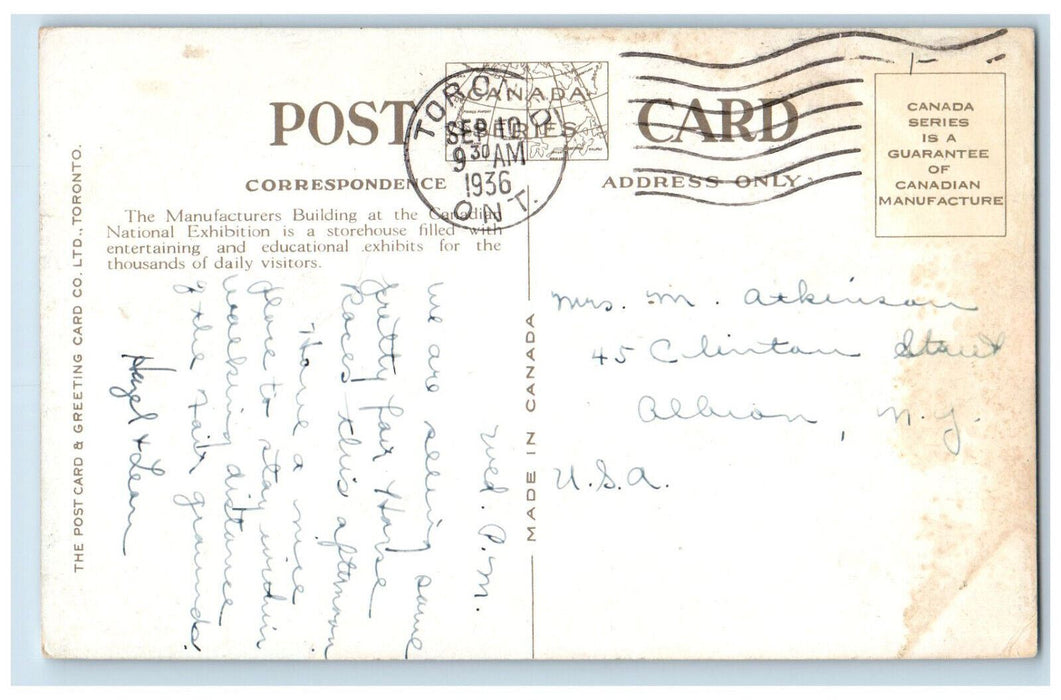 POST CARD
CANADA
SERIES
TORONTO
SEP 10
9 30 AM
1936
ONT.
CANADA
SERIES
IS A
GUARANTEE
OF
CANADIAN
MANUFACTURE
CORRESPONDENCE
ADDRESS ONLY
The Manufacturers Building at the Canadian
National Exhibition is a storehouse filled with
entertaining and educational exhibits for the
thousands of daily visitors.
Wed. P.M.
We are seeing some
pretty fair Horse
Races this afternoon
Have a nice
place to stay within
walking distance
of the Fair grounds.
Hazel + Leon
MADE IN CANADA
Mrs. M. Atkinson
45 Clinton Street
Albion, N.Y.
U.S.A.
THE POST CARD & GREETING CARD CO. LTD., TORONTO.